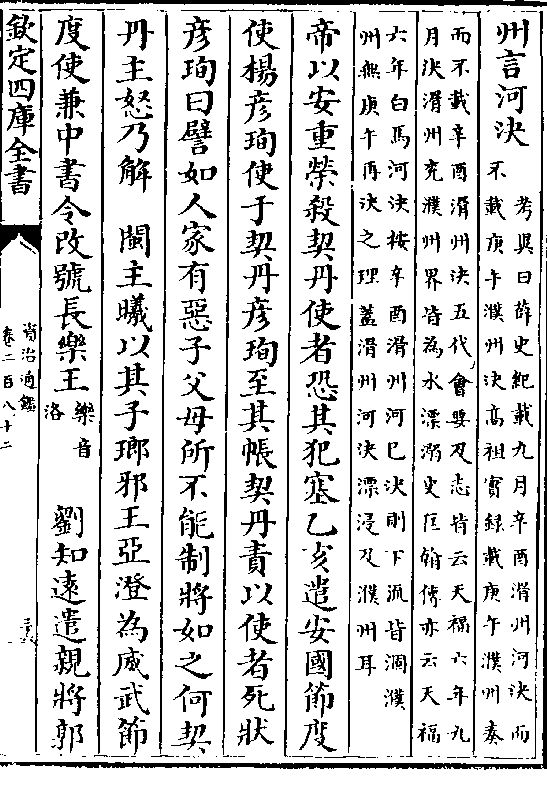 州言河決考異曰薛史紀載九月辛酉滑州河決而
不載庚午濮州決高祖實録載庚午濮州奏
而不載辛酉滑州決五代會要及志皆云天福六年九
月決滑州兖濮州界皆為水漂溺史匡翰傳亦云天福
六年白馬河決按辛酉滑州河已決則下流皆涸濮
州無庚午再決之理蓋滑州河決漂浸及濮州耳
帝以安重榮殺契丹使者恐其犯塞乙亥遣安國節度
使楊彦珣使于契丹彦珣至其帳契丹責以使者死狀
彦珣曰譬如人家有惡子父母所不能制將如之何契
丹主怒乃解 閩主曦以其子瑯邪王亞澄為威武節
度使兼中書令改號長樂王樂音
洛 劉知遠遣親將郭
欽定四庫全書
資治通鑑
卷二百八十二